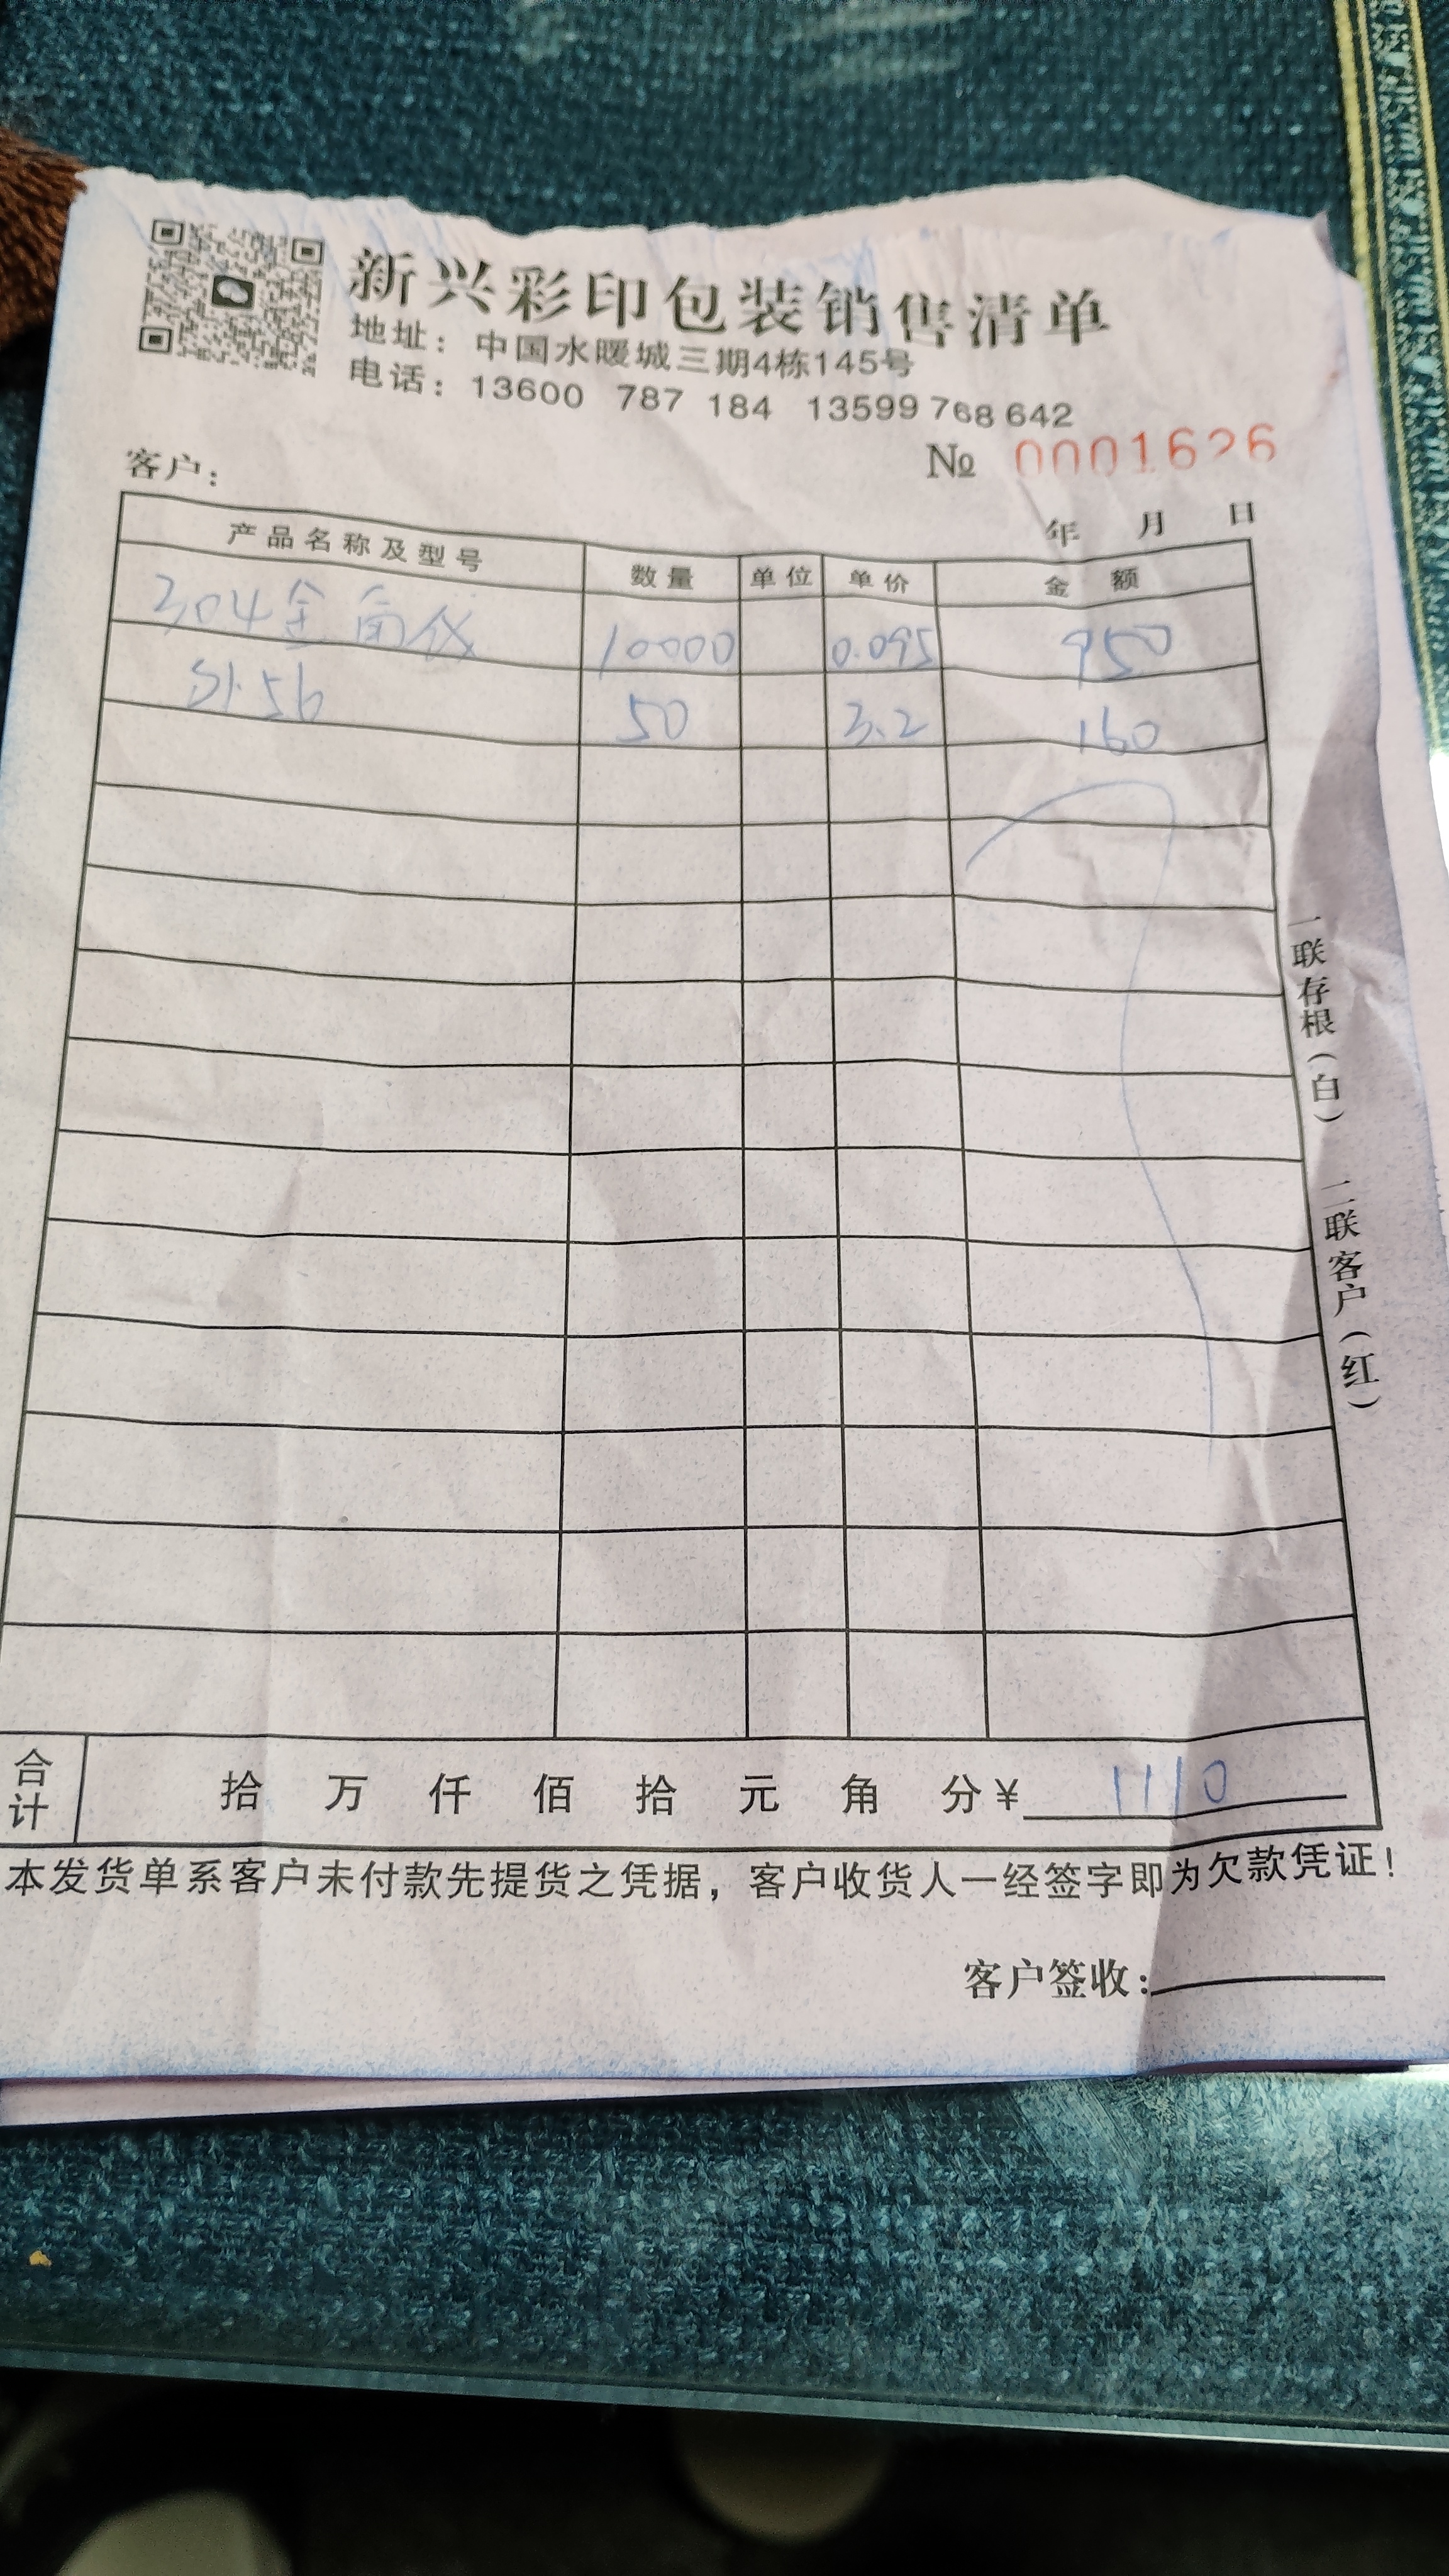 新兴彩印包装销售清单
地址：中国水暖城三期4栋145号
电话：13600 787 184 13599 768 642
№ 0001626
客户：
年 月 日
产品名称及型号 数量 单位 单价 金额
304全 10000 0.095 950
56 50 3.2 160
一联存根（白） 二联客户（红）
合计 拾 万 仟 佰 拾 元 角 分 ¥ 1110
本发货单系客户未付款先提货之凭据，客户收货人一经签字即为欠款凭证！
客户签收：